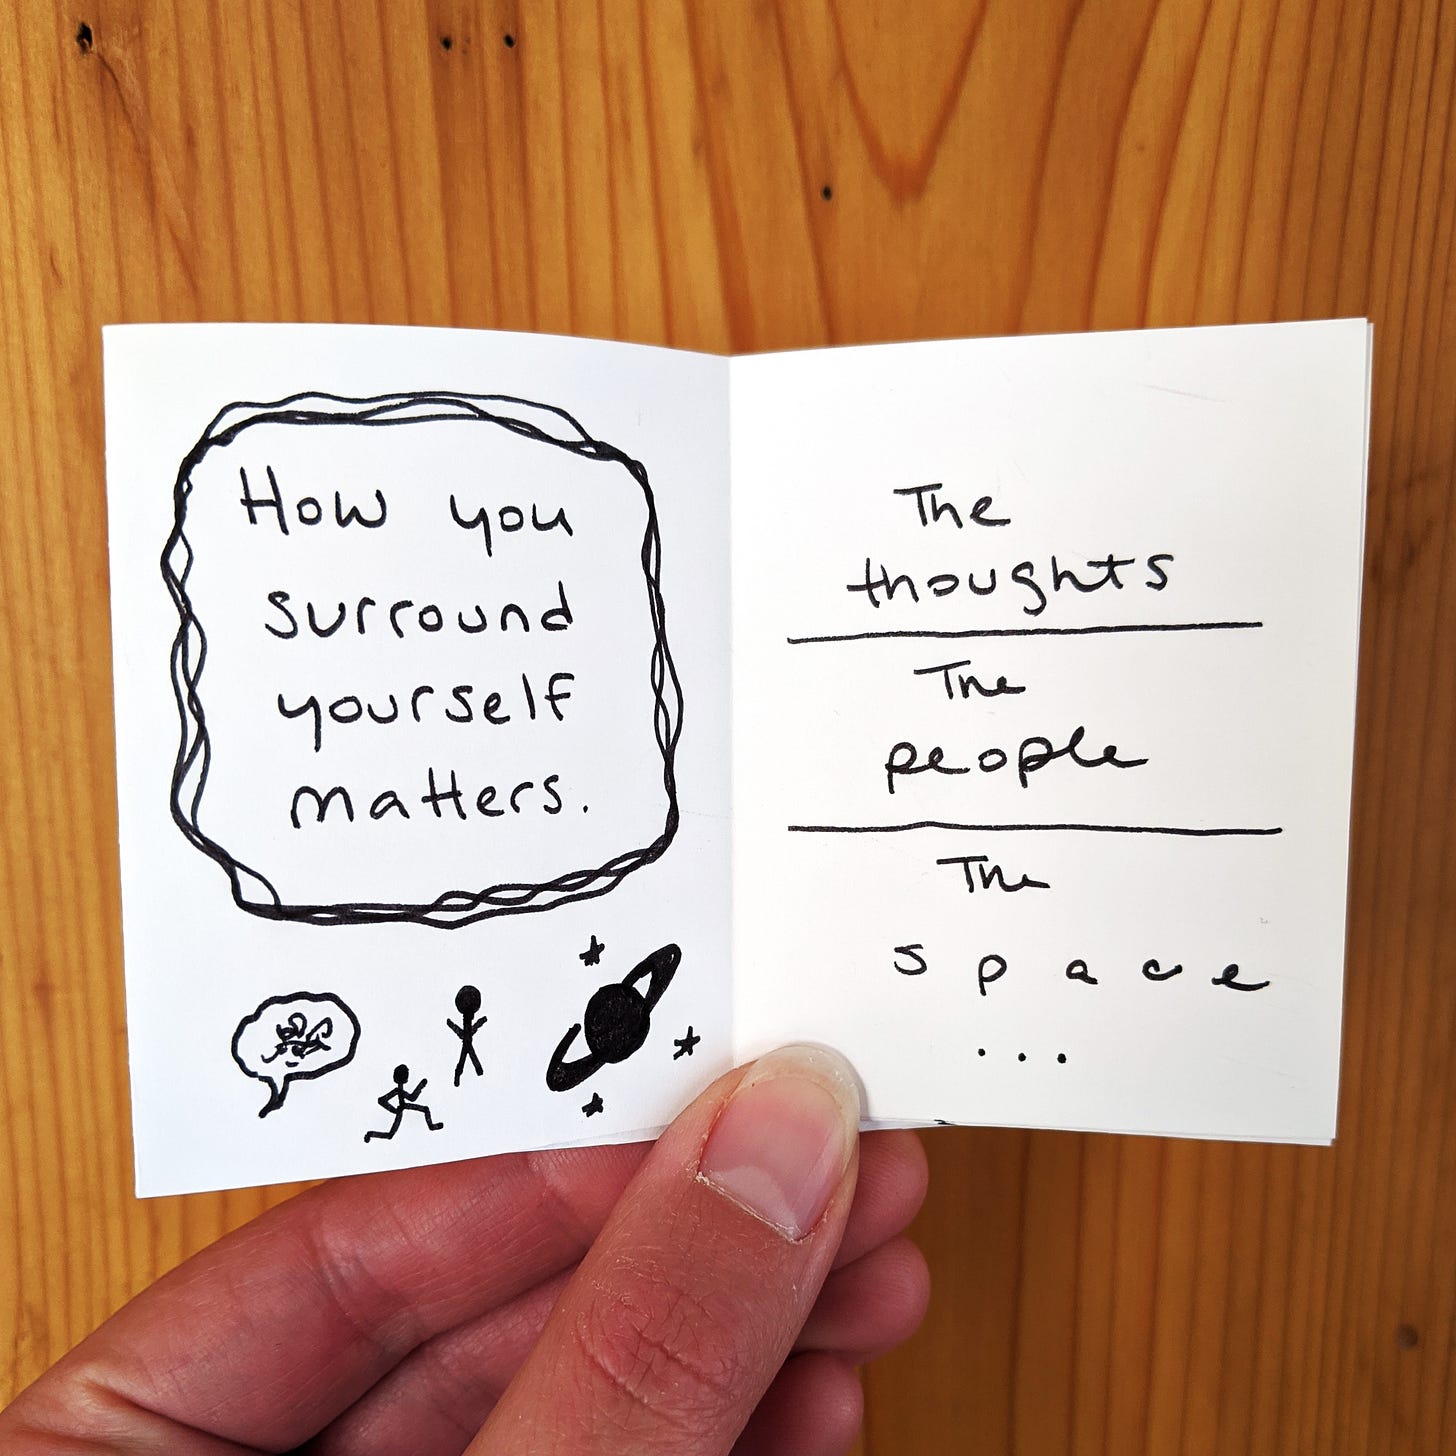 How you
surround
yourself
matters.
The
thoughts
The
people
The
space
...